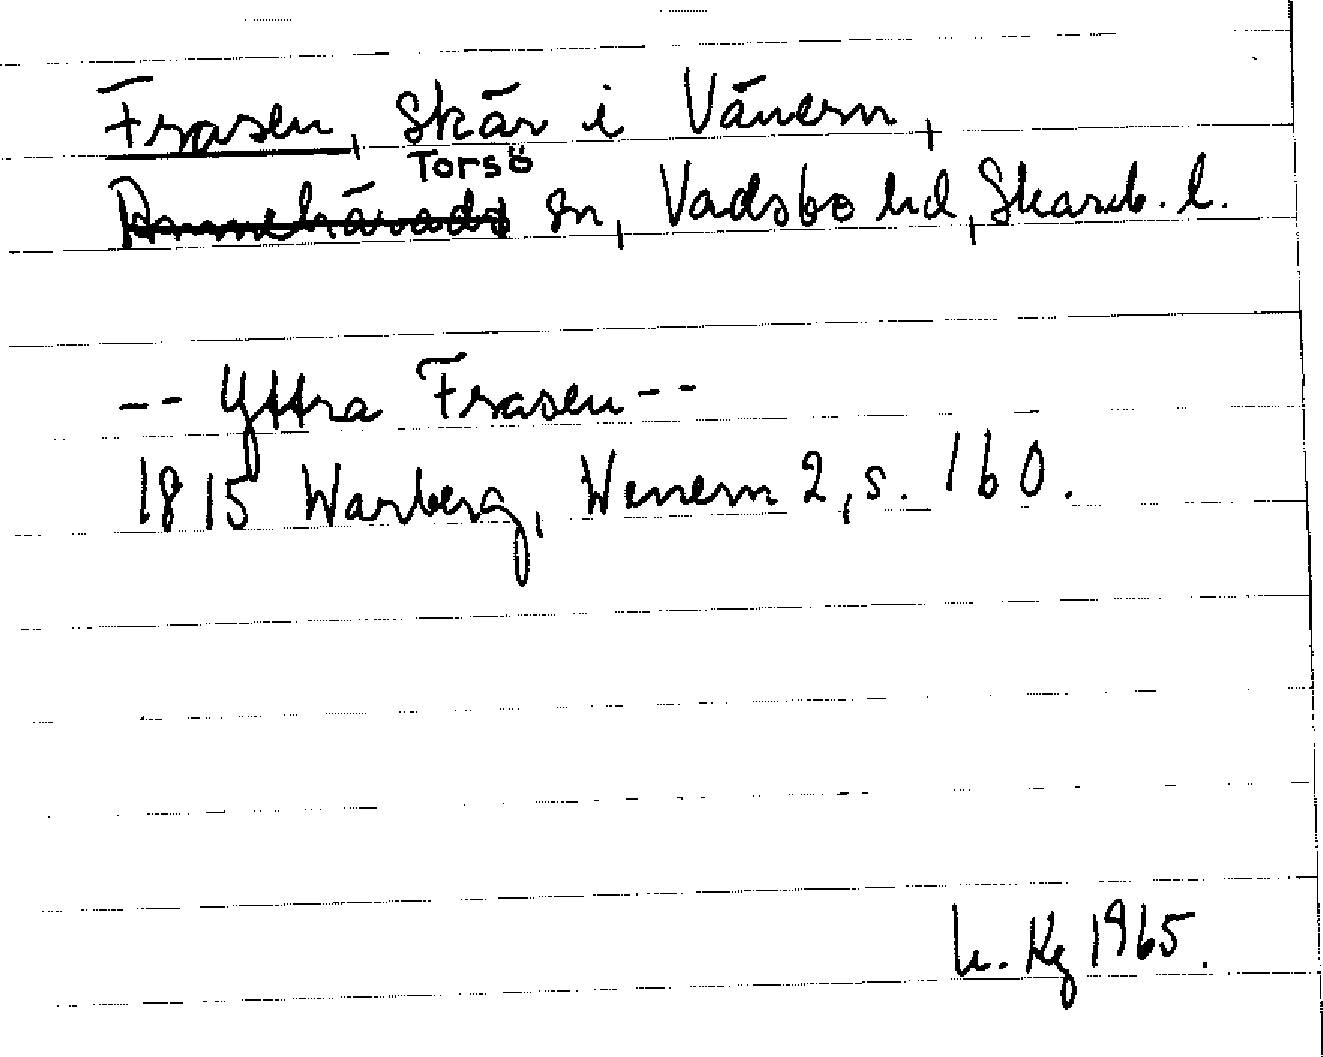 Frasen, Skär i Vänern,
Torsö
Amnehärads sn, Vadsbo hd, Skarab. l.
-- Yttra Frasen --
1815 Warberg, Wenern 2, s. 160.
Kg 1965.